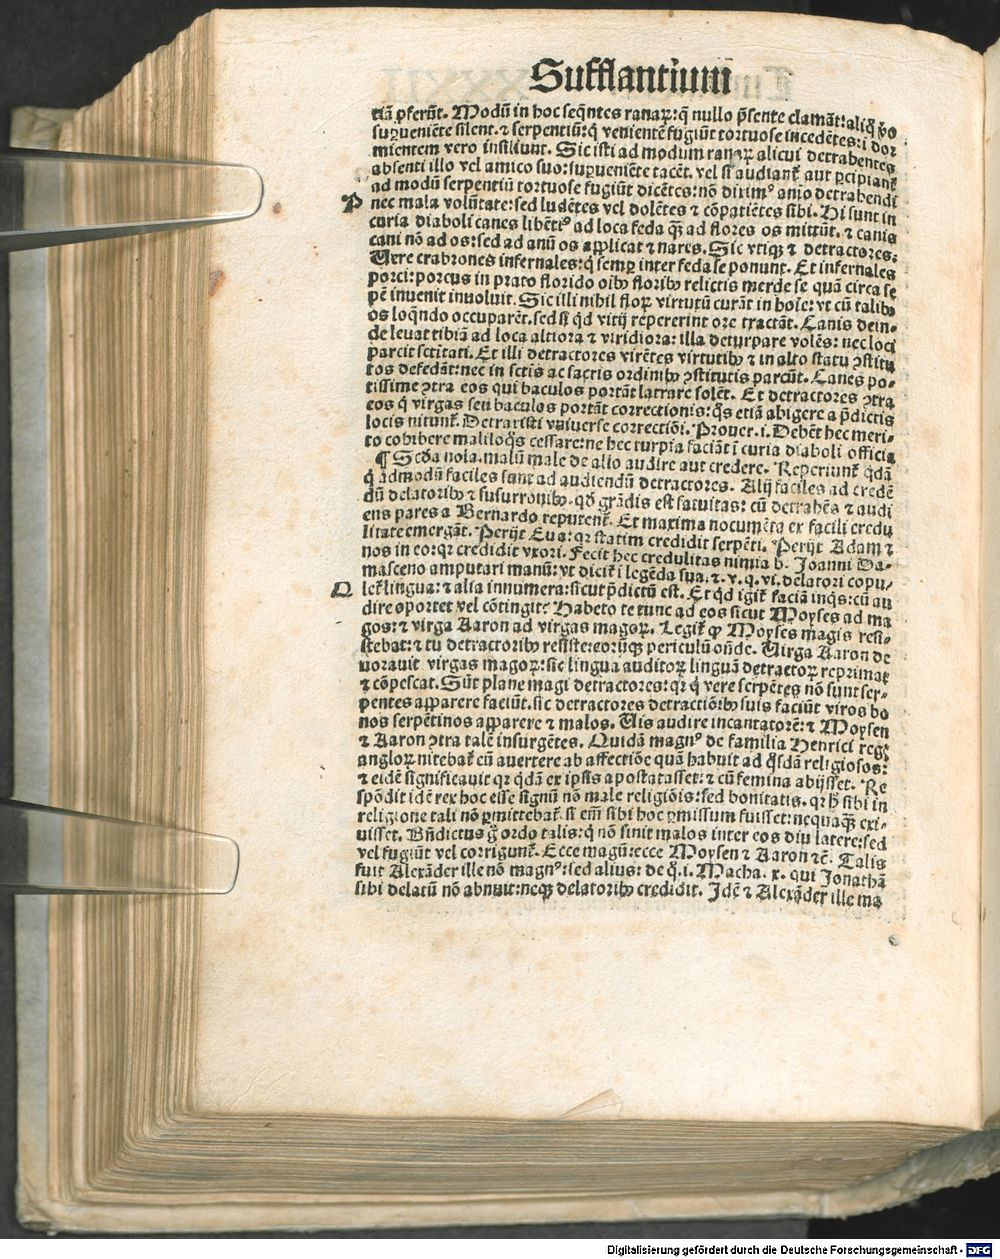 Sufflantium
tiā ꝓferūt. Modū in hoc seqūntes ranaꝝ: q̄ nullo p̄sente clamāt: aliq̊ ꝟo
suꝑueniēte silent. ⁊ serpentiū: q̄ venientē fugiūt tortuose incedētes: ī dor
mientem vero insiliunt. Sic isti ad modum ranaꝝ alicui detrahentes
absenti illo vel amico suo: suꝑueniēte tacēt. vel si audianť aut ꝑcipianť
ad modū serpentiū tortuose fugiūt dicētes: nō diximꝰ aīo detrahendi
P nec mala volūtate: sed ludētes vel dolētes ⁊ cōpatiētes sibi. Hi sunt in
curia diaboli canes libētiꝰ ad loca feda qᷓ̄ ad flores os mittūt. ⁊ canis
cani nō ad os: sed ad anū os applicat ⁊ nares. Sic vtiqꝫ ⁊ detractores.
Vere crabrones infernales: q̄ semꝑ inter feda se ponunt. Et infernales
porci: porcus in prato florido oībꝰ floribꝰ relictis merde se quā circa se
pē inuenit inuoluit. Sic illi nihil floꝝ virtutū curāt in hoīe: vt cū talibꝰ
os loqn̄do occuparēt. sed si qd vitij repererint ore tractāt. Canis dein-
de leuat tibiā ad loca altiora ⁊ viridiora: illa deturpare volēs: nec loci
parcit sctītati. Et illi detractores virētes virtutibꝰ ⁊ in alto statu ꝯstitu
tos defedāt: nec in sctīs ac sacris ordinibꝰ ꝯstitutis parcūt. Canes po-
tissime ꝯtra eos qui baculos portāt latrare solēt. Et detractores ꝯtra
eos q̄ virgas seu baculos portāt correctionis: qͦs etiā abigere a p̄dictis
locis nitunť. Detraxisti vniuerse correctiōi. Prouer. i. Debēt hec meri-
to cohibere maliloqͦs cessare: ne hec turpia faciāt ī curia diaboli officia
¶ Scďa nola. malū male de alio audire aut credere. Reperiunť qdā
q̄ admodū faciles sunt ad audiendū detractores. Alij faciles ad credē
dū delatoribꝰ ⁊ susurronibꝰ. qď grādis est fatuitas: cū detrahēs ⁊ audi
ens pares a Bernardo reputenť. Et maxima nocumēta ex facili credu
litate emergāt. Perijt Eua: qꝛ statim credidit serpēti. Perijt Adam ⁊
nos in eo: qꝛ credidit vxori. Fecit hec credulitas nimia b. Joanni Da-
masceno amputari manū: vt diciť ī legēda sua. ⁊. v. q. vi. delatori copu-
Q leť lingua: ⁊ alia innumera: sicut p̄dictū est. Et qd igiť faciā inqͥs: cū au
dire oportet vel cōtingit? Habeto te tunc ad eos sicut Moyses ad ma
gos: ⁊ virga Aaron ad virgas magoꝝ. Legiť ꝙ Moyses magis resi-
stebat: ⁊ tu detractoribꝰ resiste: eorūqꝫ periculū on̄de. Virga Aaron de
uorauit virgas magoꝝ: sic lingua auditoꝝ linguā detractoꝝ reprimat
⁊ cōpescat. Sūt plane magi detractores: qꝛ q̄ vere serpētes nō sunt ser-
pentes apparere faciūt. sic detractores detractiōibꝰ suis faciūt viros bo
nos serpētinos apparere ⁊ malos. Vis audire incantatorē: ⁊ Moysen
⁊ Aaron ꝯtra talē insurgētes. Quidā magnꝰ de familia Henrici regꝭ
angloꝝ nitebať eū auertere ab affectiōe quā habuit ad qͦsdā religiosos:
⁊ eidē significauit qꝛ qdā ex ipsis apostatasset: ⁊ cū femina abijsset. Re
spōdit idē rex hoc esse signū nō male religiōis: sed bonitatis. qꝛ hͦ sibi in
religione tali nō ꝑmittebať. si em̄ sibi hoc ꝑmissum fuisset: nequaqᷓ̄ exi-
uisset. Bn̄dictus g̊ ordo talis: q̄ nō sinit malos inter eos diu latere: sed
vel fugiūt vel corrigunť. Ecce magū: ecce Moysen ⁊ Aaron ⁊c̄. Talis
fuit Alexāder ille nō magnꝰ: sed alius: de q̊. i. Macha. x. qui Jonathā
sibi delatū nō abnuit: neqꝫ delatoribꝰ credidit. Jdē ⁊ Alexāder ille ma
Digitalisierung gefördert durch die Deutsche Forschungsgemeinschaft - DFG